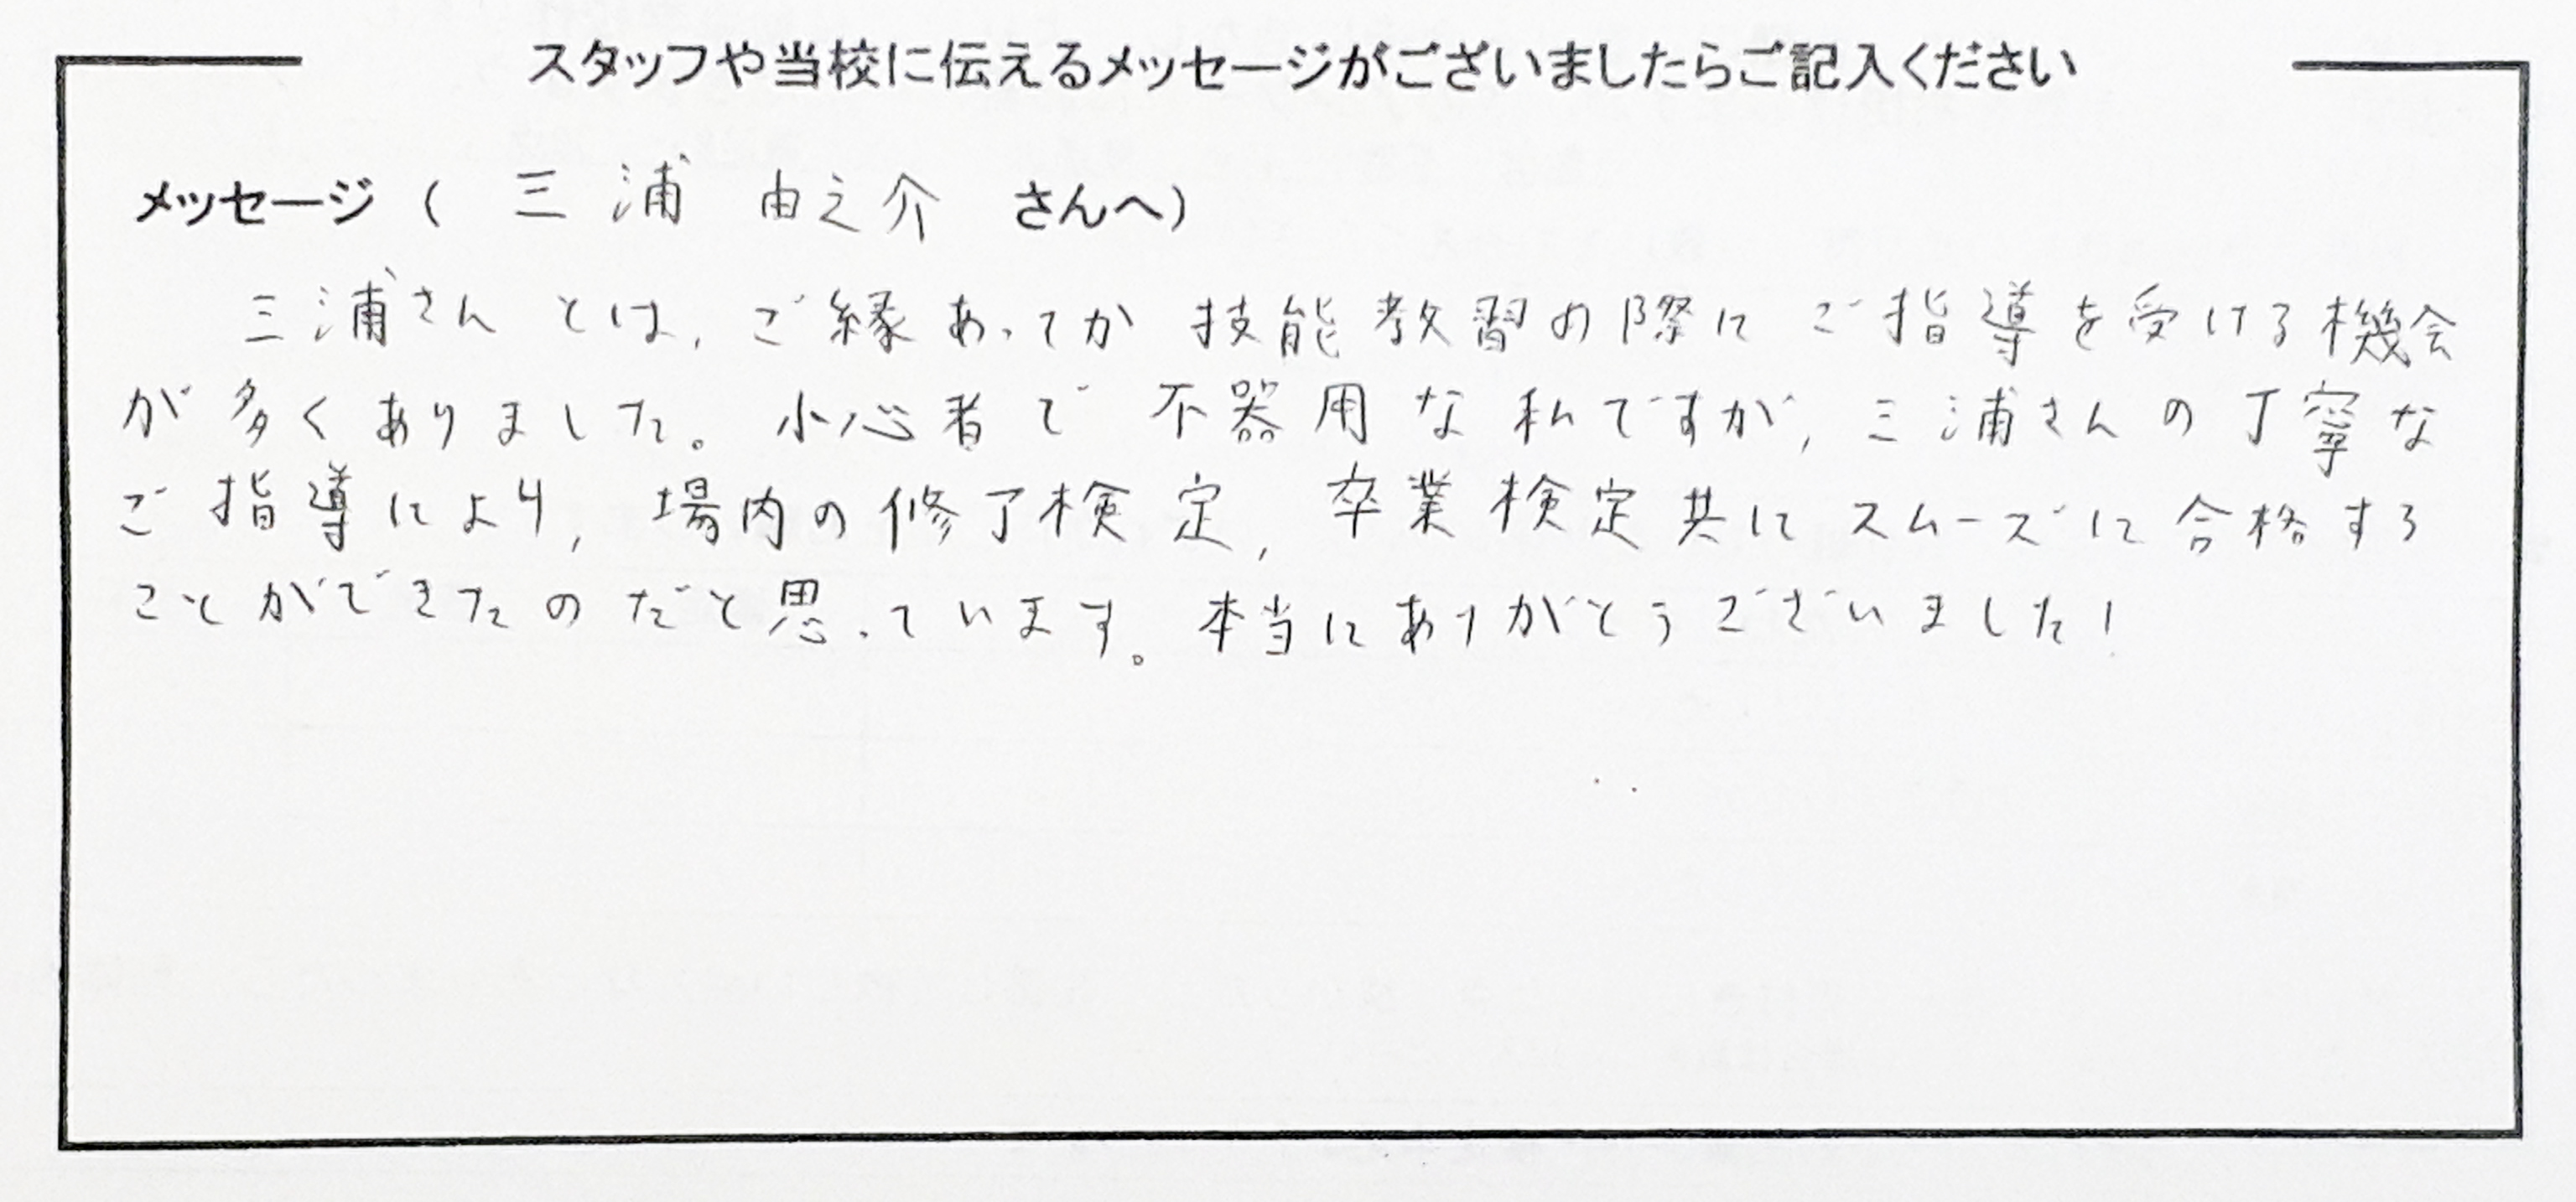 スタッフや当校に伝えるメッセージがございましたらご記入ください
メッセージ（ 三浦 由之介 さんへ）
三浦さんとは, ご縁あってか 技能教習の際に ご指導を受ける機会
が多くありました。小心者で 不器用な私ですが, 三浦さんの丁寧な
ご指導により, 場内の修了検定, 卒業検定共に スムーズに合格する
ことができたのだと思っています。本当にありがとうございました!